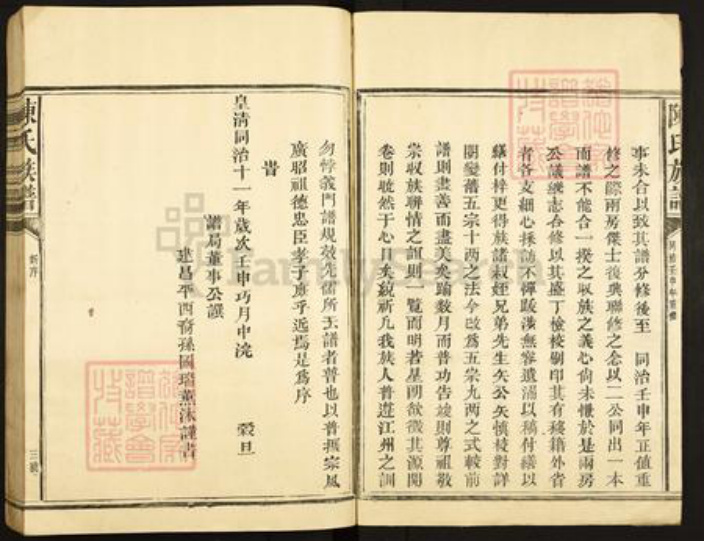 陳氏族譜
同治壬申年重修
事未合以致其譜分修後至 同治壬申年正値重
修之際兩房傑士復興聯修之念以二公同出一本
而譜不能合一揆之収族之義心尙未愜於是兩房
公議繼志合修以其盛丁檢校刷印其有移籍外省
者各支細心採訪不憚跋涉無容遺漏以稿付繕以
繕付梓更得族諸叔姪兄弟先生矢公矢慎校對詳
閱變舊五宗十兩之法今改爲五宗九兩之式較前
譜則盡善而盡美矣踰数月而普功告竣則尊祖敬
宗収族聯情之誼則一覽而明若星朗欲徵其源閱
卷則眩然于心目矣統祈凢我族人普遵江州之訓
勿悖義門譜規效先儒所云譜者普也以普攝宗風
廣昭祖德忠臣孝子庶乎近焉是爲序
旹
皇清同治十一年歲次壬申巧月中浣 榖旦
譜局董事公譔
建昌平西裔孫國瑞薰沐謹書
陳氏族譜
新序
三號
FamilySearch